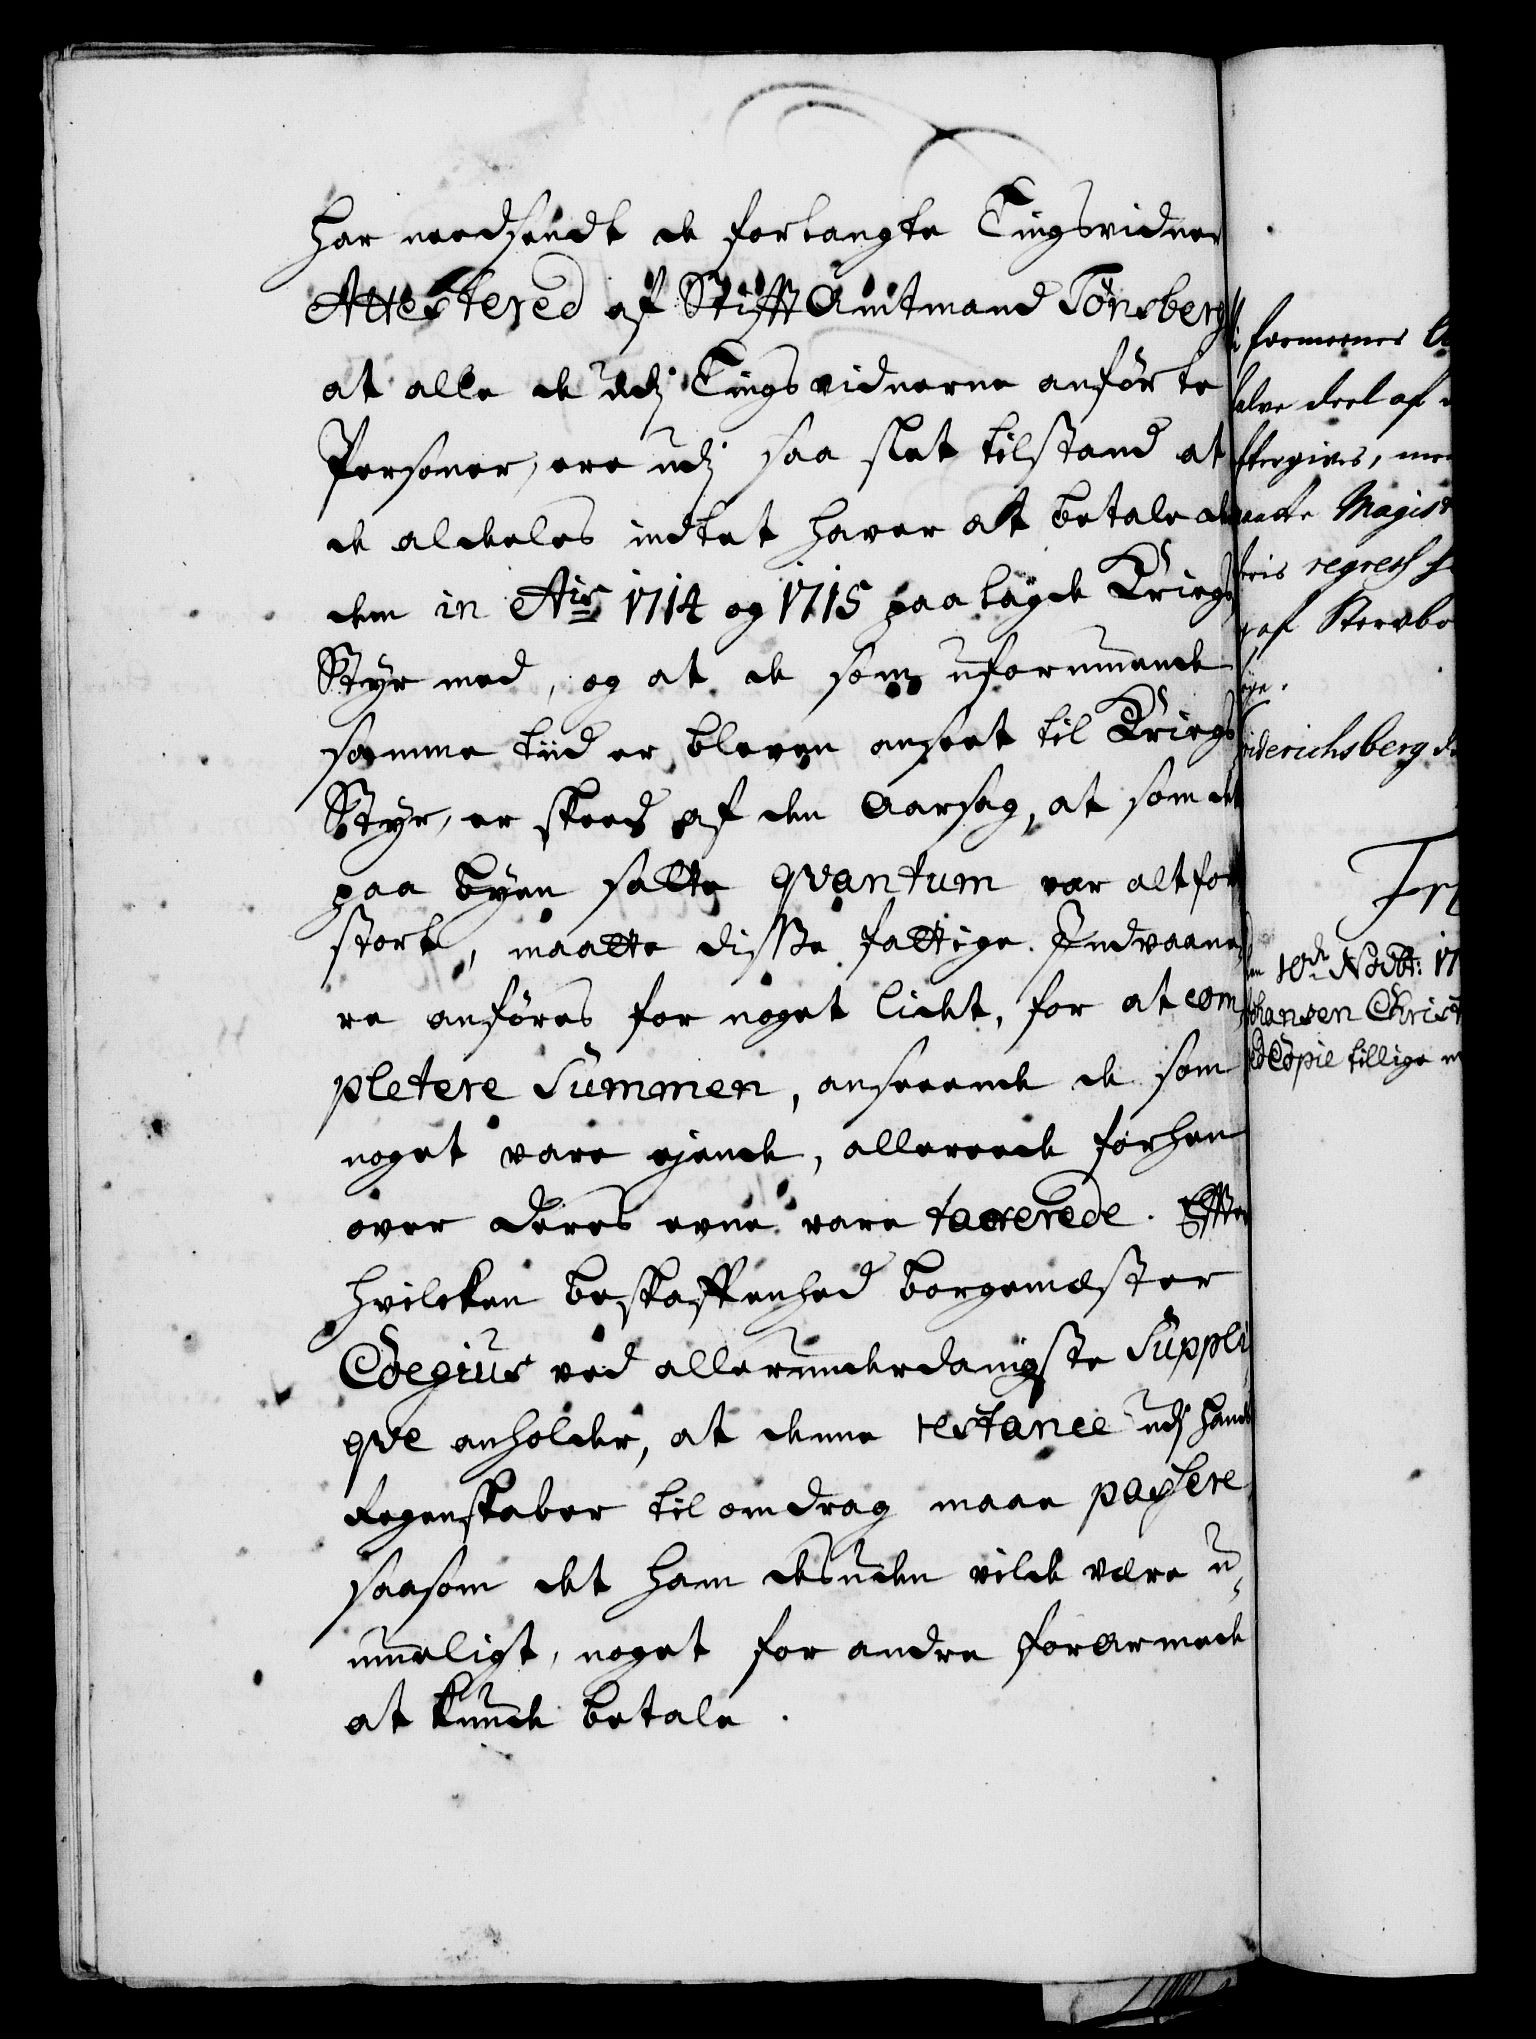 har needsendt de forlangte Tingsvidner
Attestered af Stifft Amtmand Tönsberg
at alle de udj Tingsvidnerne anförte
Personer, ere udj saa slet tilstand at
de aldeles indtet haver at betale de
dem in Ais 1714 og 1715 paalagde Kriegs
Styr med, og at de som uformuende
samme tiid er bleven anseet til Kriegs
Styr, er skeed af den Aarsag, at som det
paa byen satte qvantum var alt for
stort, maatte disse fattige Indvaane,
re anföres for noget lidt, for at com
pletere Summen, anseende de som
noget vare ejende, allereede forhen
over deres evne vare taxerede. Effter
hvilcken beskaffenhed borgemester
Coegius ved allerunderdanigste Suppli
qve anholder, at denne restance udj hans
Regenskaber til omdrag maae passere,
saasom det ham desuden vilde være u,
mueligt, noget for andre forarmede
at kunde betale.
formernes
halve deel af
fftergives, men
Magist
regress
af Sterbo
øye.
riderichsberg d
Fri
10de Novbr: 17
Johansen Christ
Copie tillige m